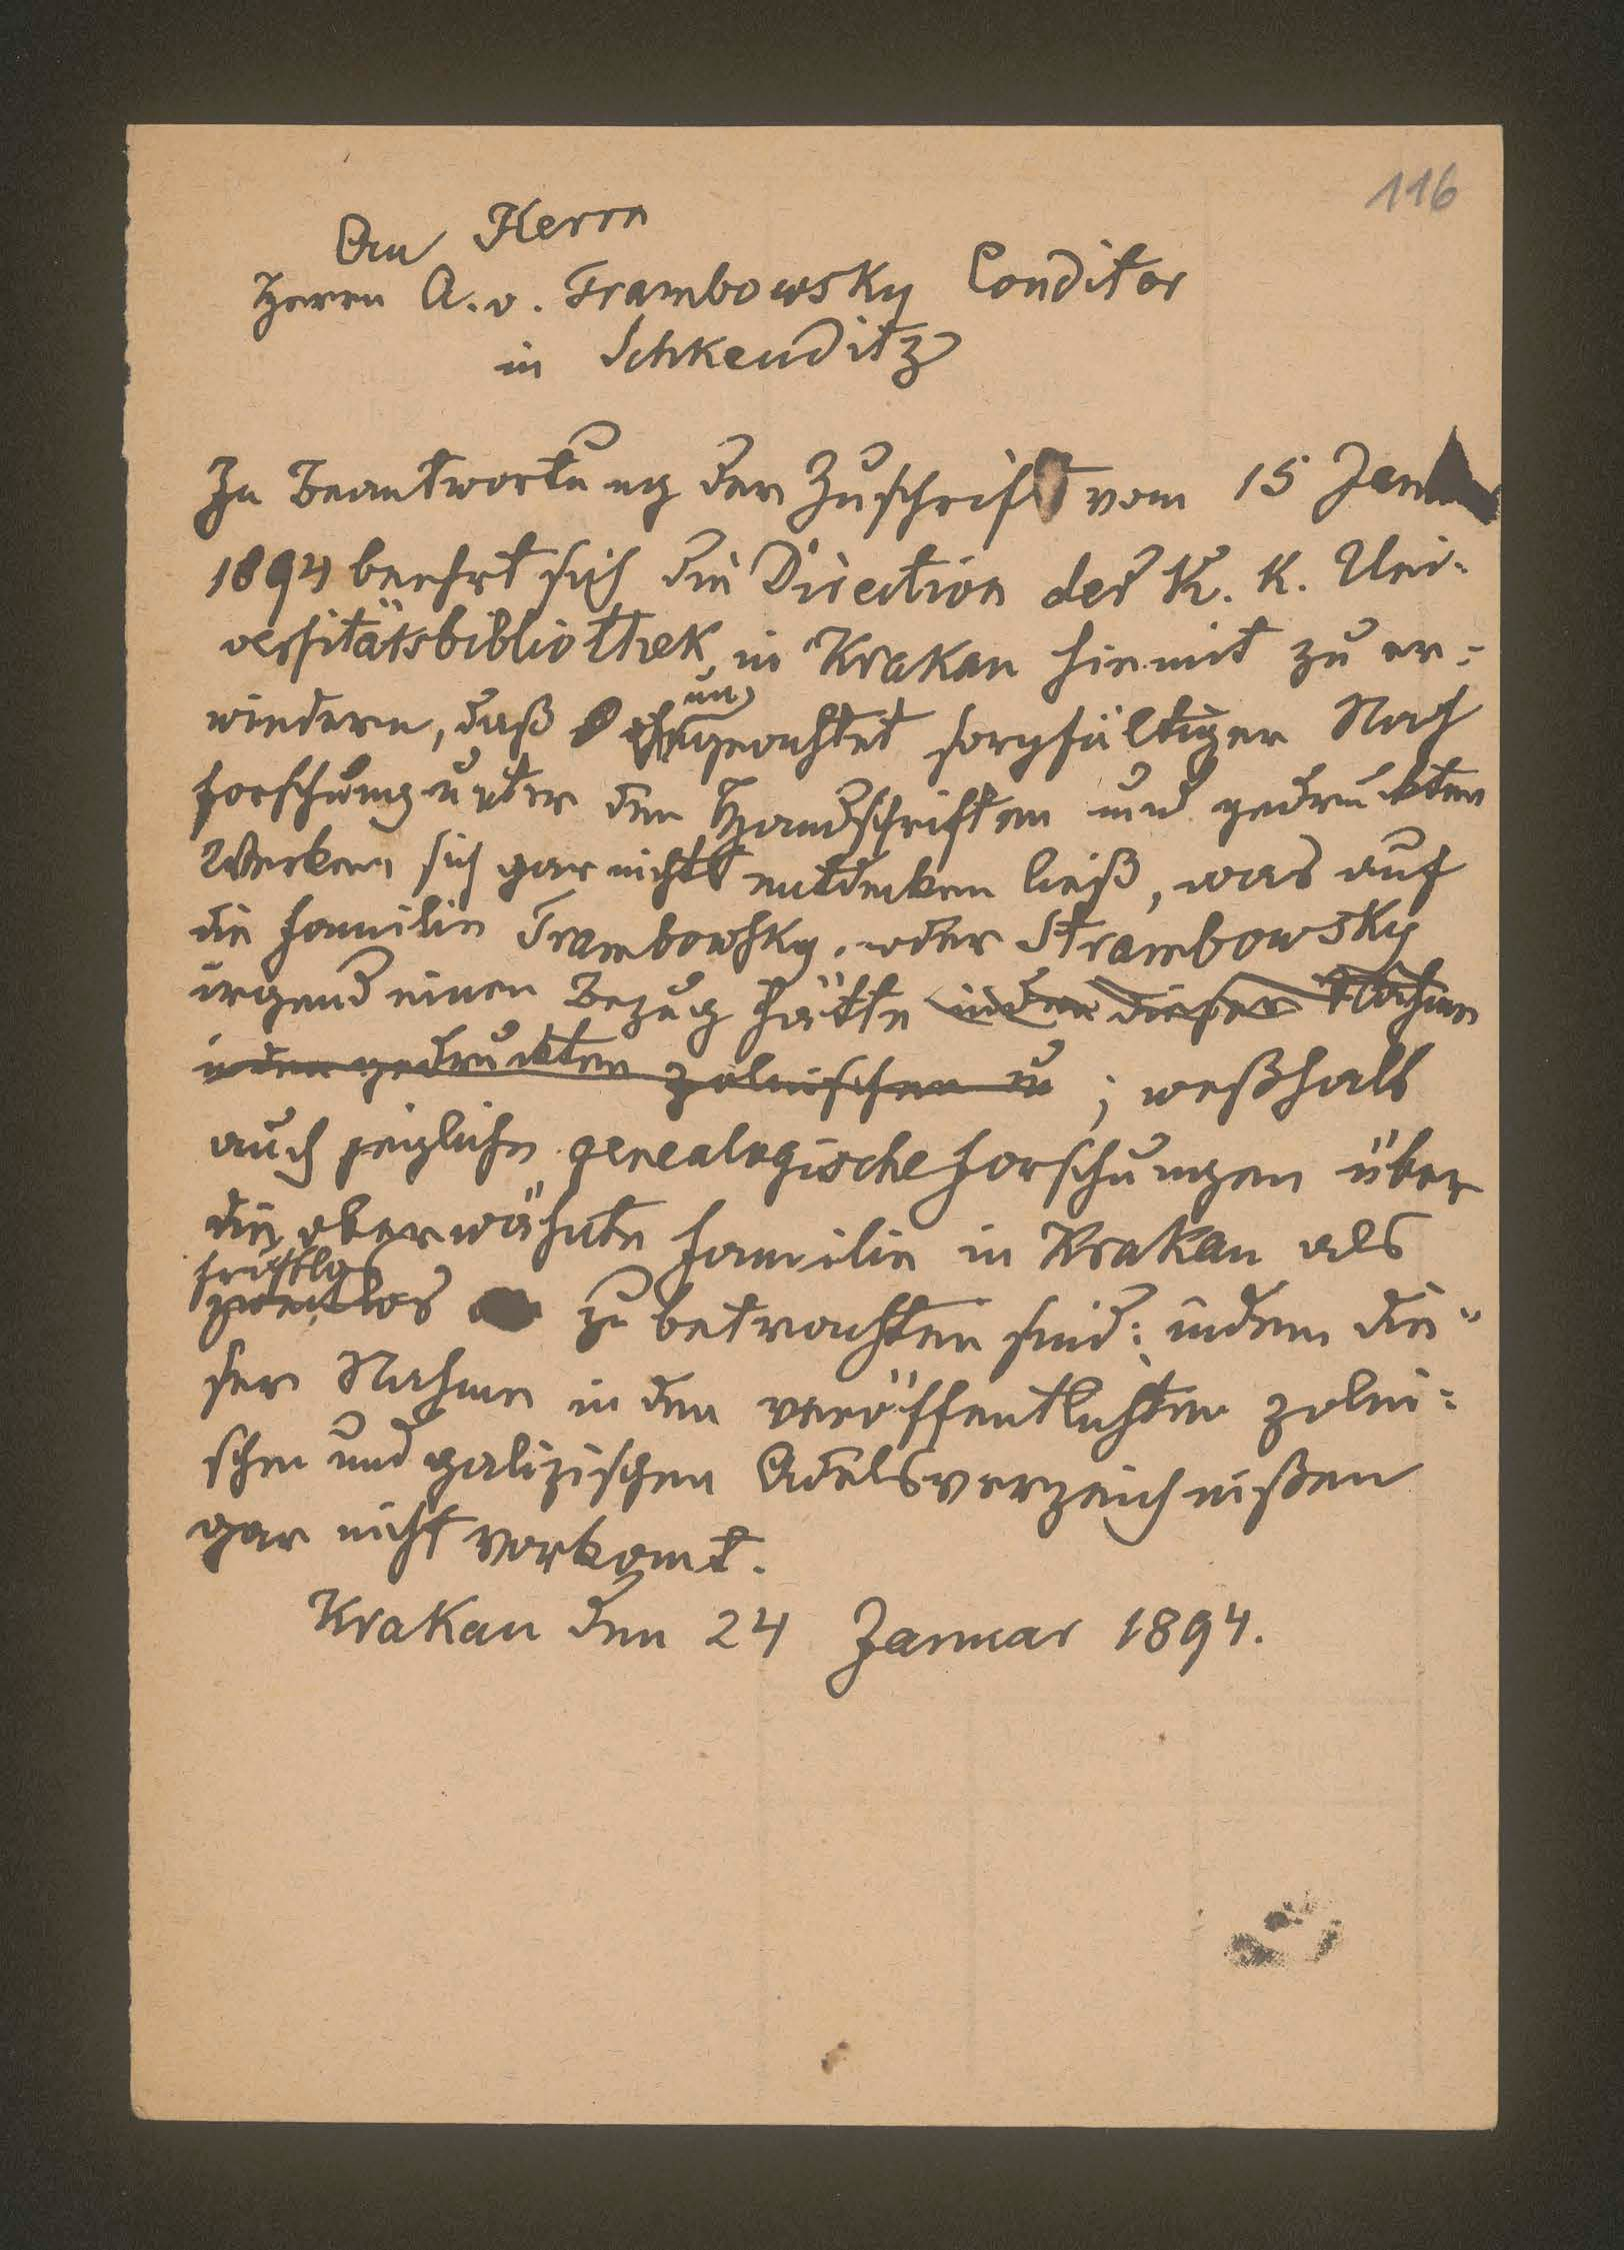 116
An Herrn
Herrn A. v. Trambowsky Conditor
in Schkeuditz
In Beantwortung der Zuschrift vom 15 Jan
1894 beehrt sich die Direction der K. K. Uni-
versitätsbibliothek in Krakau hiemit zu er-
wiedern, daß
un
geachtet sorgfältiger Nach
forschung unter den Handschriften und gedruckten
Werken sich gar nichts entdecken ließ, was auf
die Familie Trambowsky oder Strambowsky
irgend einen Bezug hätte indem dieser Nahme
in den gedruckten polnischen u ; weßhalb
auch jegliche genealogische Forschungen über
die oberwähnte Familie in Krakau als
fruchtlos
zwecklos zu betrachten sind; indem die-
ser Nahme in den veröffentlichten polni-
schen und galizischen Adelsverzeichnißen
gar nicht vorkomt.
Krakau den 24 Januar 1894.